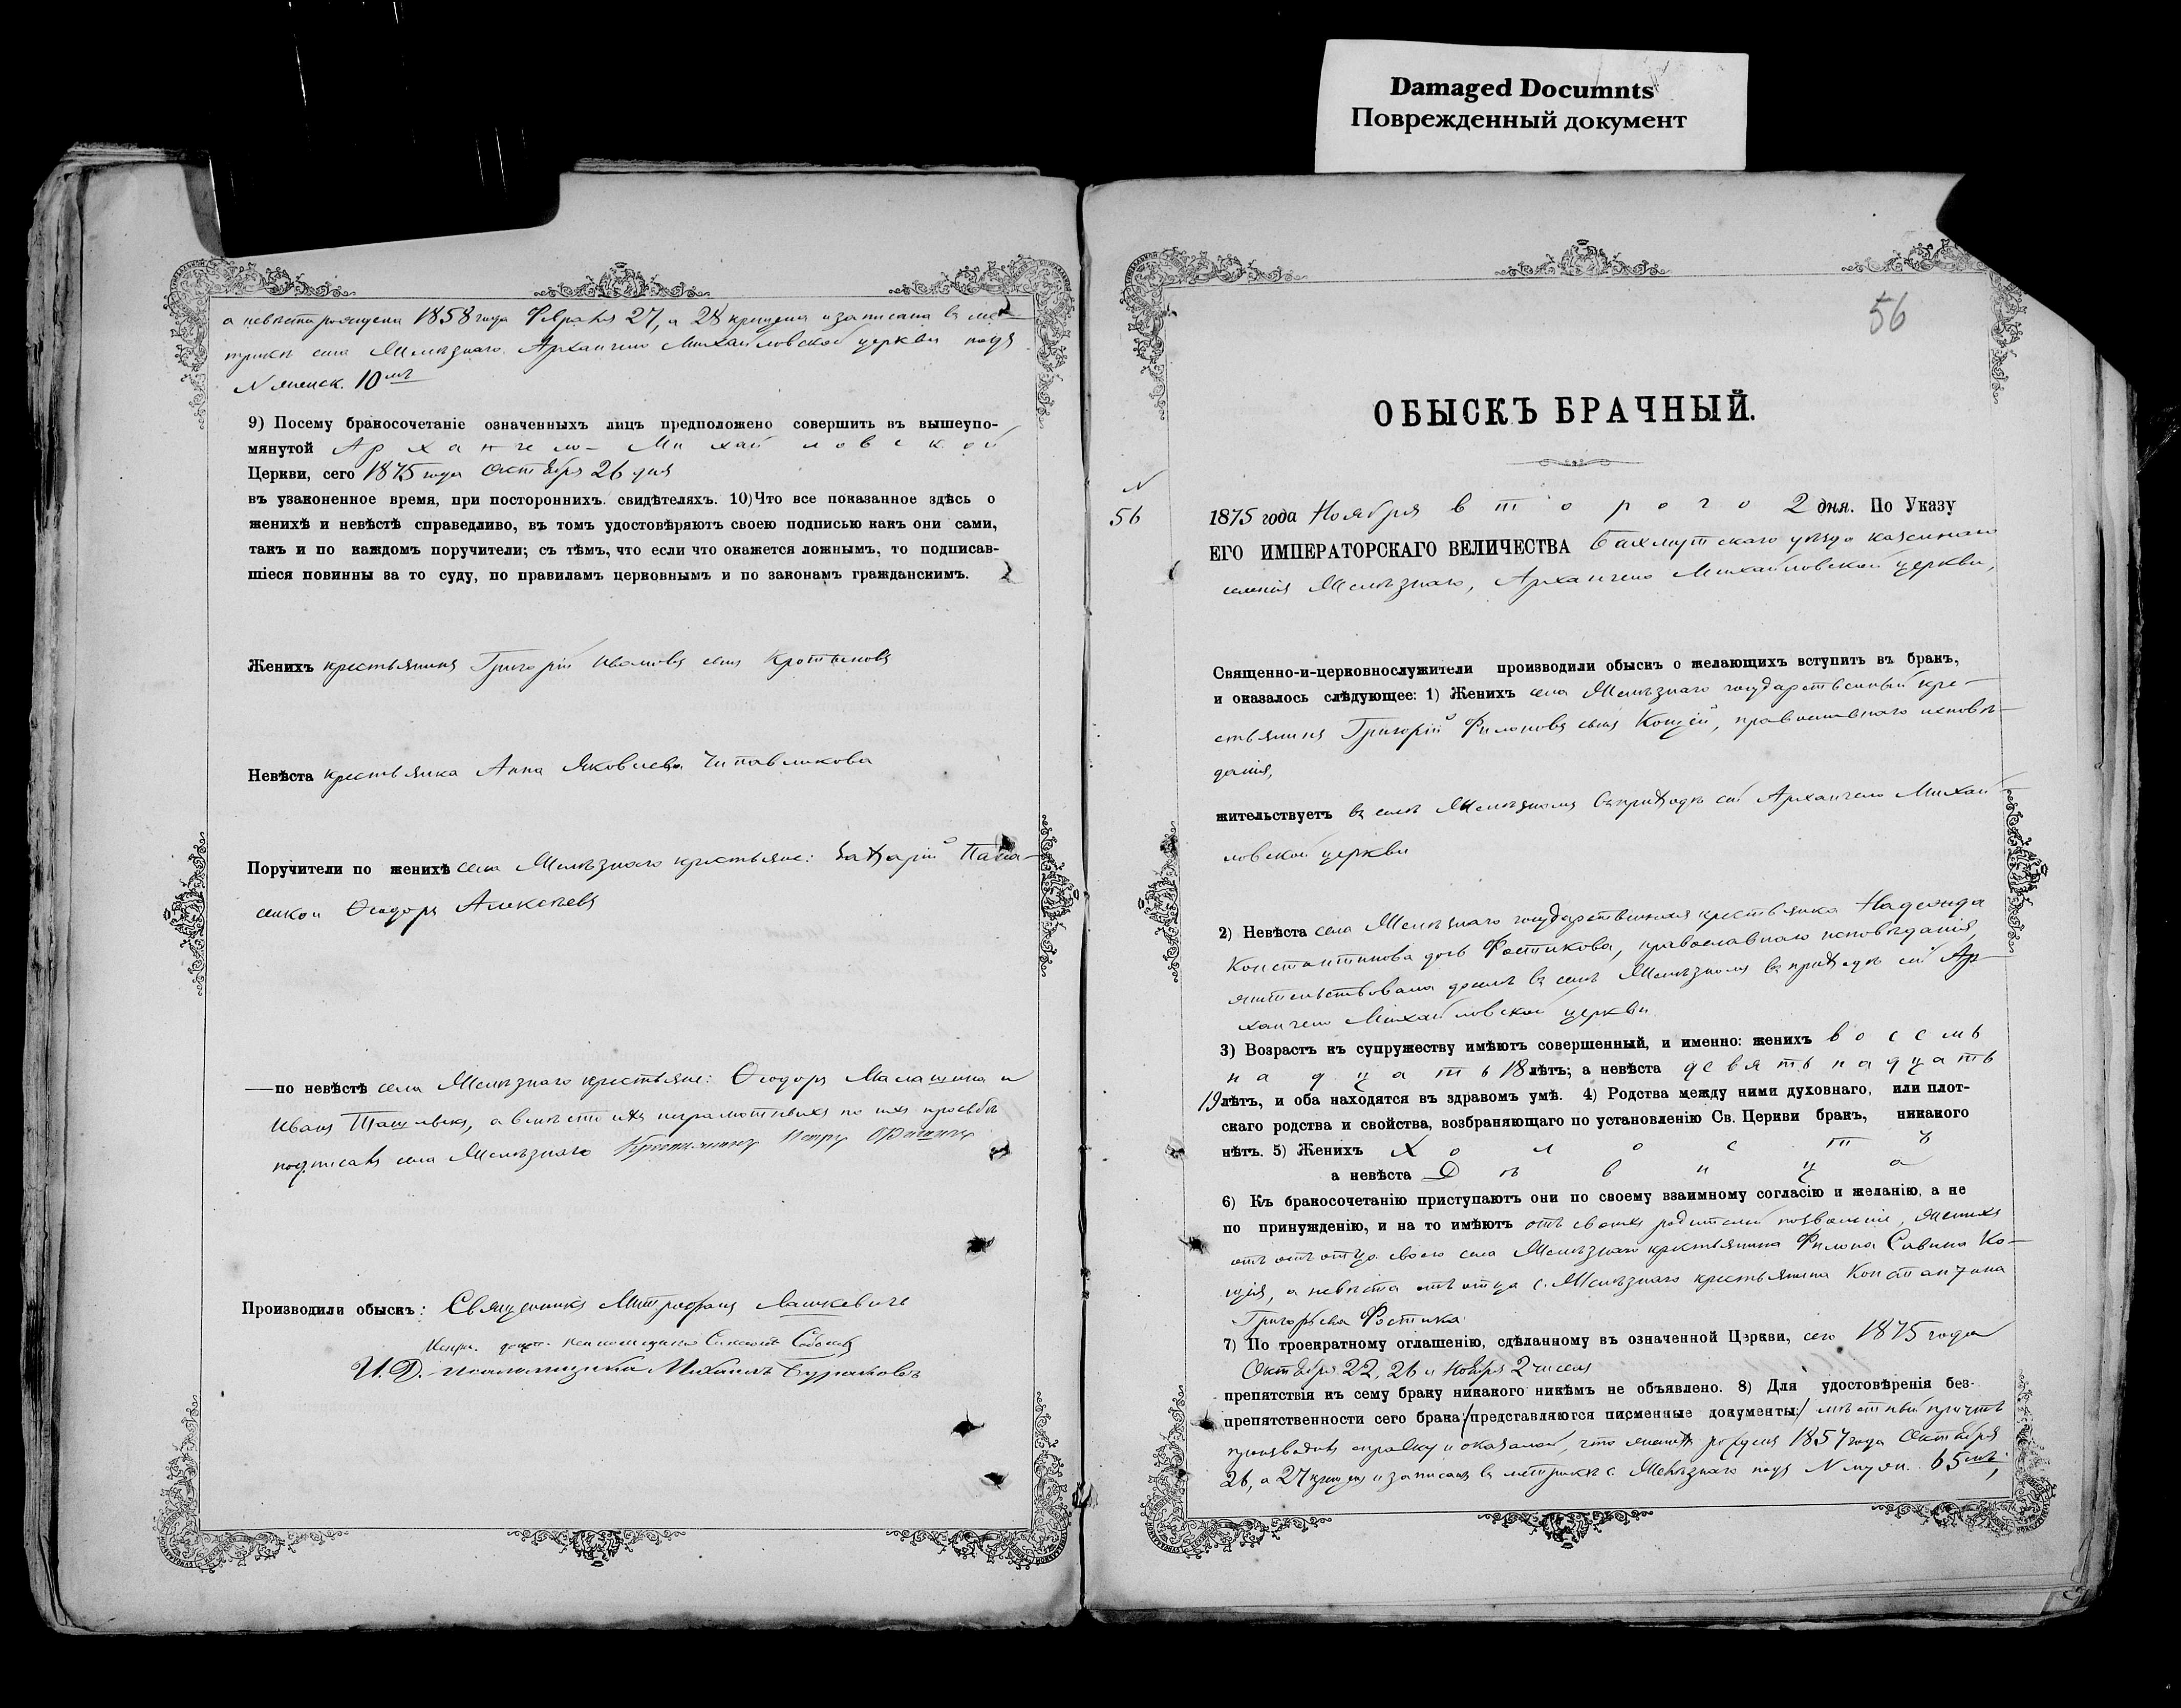 Damaged Documnts
Поврежденный документ
а невѣста рождена 1858 года Февраля 27, а 28 крещена и записана въ ме-
трикѣ села Желѣзнаго Архангело Михайловской церкви подъ
N женск. 10мъ
9) Посему бракосочетаніе означенныхъ лицъ предположено совершить въ вышеупо-
мянутой Архангело-Михайловской
Церкви, сего 1875 года Октября 26 дня
въ узаконенное время, при постороннихъ свидѣтеляхъ. 10) Что все показанное здѣсь о
женихѣ и невѣстѣ справедливо, въ томъ удостовѣряютъ своею подписью какъ они сами,
такъ и по каждомъ поручители; съ тѣмъ, что если что окажется ложнымъ, то подписав-
шіеся повинны за то суду, по правиламъ церковнымъ и по законамъ гражданскимъ.
Женихъ крестьянинъ Григорій Ивановъ сынъ
Невѣста крестьянка Анна Яковлева
Поручители по женихѣ села Желѣзнаго крестьяне: Захарій
Ѳеодоръ Алексѣевъ
— по невѣстѣ села Желѣзнаго крестьяне: Ѳеодоръ и
Иванъ а вмѣсто ихъ неграмотныхъ по ихъ просьбѣ
подписалъ села Желѣзнаго
Производили обыскъ: Священникъ Митрофанъ Лашкевичъ
И. Д. псаломщика Михаилъ
56
ОБЫСКЪ БРАЧНЫЙ.
N
56
1875 года Ноября второго 2 дня. По Указу
ЕГО ИМПЕРАТОРСКАГО ВЕЛИЧЕСТВА Бахмутскаго уѣзда казеннаго
селенія Желѣзнаго, Архангело Михайловской церкви,
Священно-и-церковнослужители производили обыскъ о желающихъ вступить въ бракъ,
и оказалось слѣдующее: 1) Женихъ села Желѣзнаго государственный кре-
стьянинъ Григорій Филоновъ сынъ Кощій, православнаго исповѣ-
данія,
жительствуетъ въ селѣ Желѣзномъ въ приходѣ сей Архангело Михай-
ловской церкви
2) Невѣста села Желѣзнаго государственная крестьянка Надежда
Константинова дочь Фостикова, православнаго исповѣданія,
жительствовала доселѣ въ селѣ Желѣзномъ въ приходѣ сей Ар-
хангело Михайловской церкви
3) Возрастъ къ супружеству имѣютъ совершенный, и именно: женихъ восемь
надцать 18 лѣтъ; а невѣста девятьнадцать
19 лѣтъ, и оба находятся въ здравомъ умѣ. 4) Родства между ними духовнаго, или плот-
скаго родства и свойства, возбраняющаго по установленію Св. Церкви бракъ, никакого
нѣтъ. 5) Женихъ Холостъ
а невѣста Дѣвица
6) Къ бракосочетанію приступаютъ они по своему взаимному согласію и желанію, а не
по принужденію, и на то имѣютъ отъ своихъ родителей позволеніе, женихъ
отъ отца своего села Желѣзнаго крестьянина Филона Савина Ко-
щія, а невѣста отъ отца с. Желѣзнаго крестьянина Константина
Григорьева Фостика
7) По троекратному оглашенію, сдѣланному въ означенной Церкви, сего 1875 года
Октября 22, 26 и Ноября 2 чиселъ
препятствія къ сему браку никакого никѣмъ не объявлено. 8) Для удостовѣренія без-
препятственности сего брака:/представляются писменные документы:/ мѣстный причтъ
производилъ справку и оказалось, что женихъ рожденъ 1857 года Октября
26, а 27 крещенъ и записанъ въ метрикѣ с. Желѣзнаго подъ N муж. 65мъ,